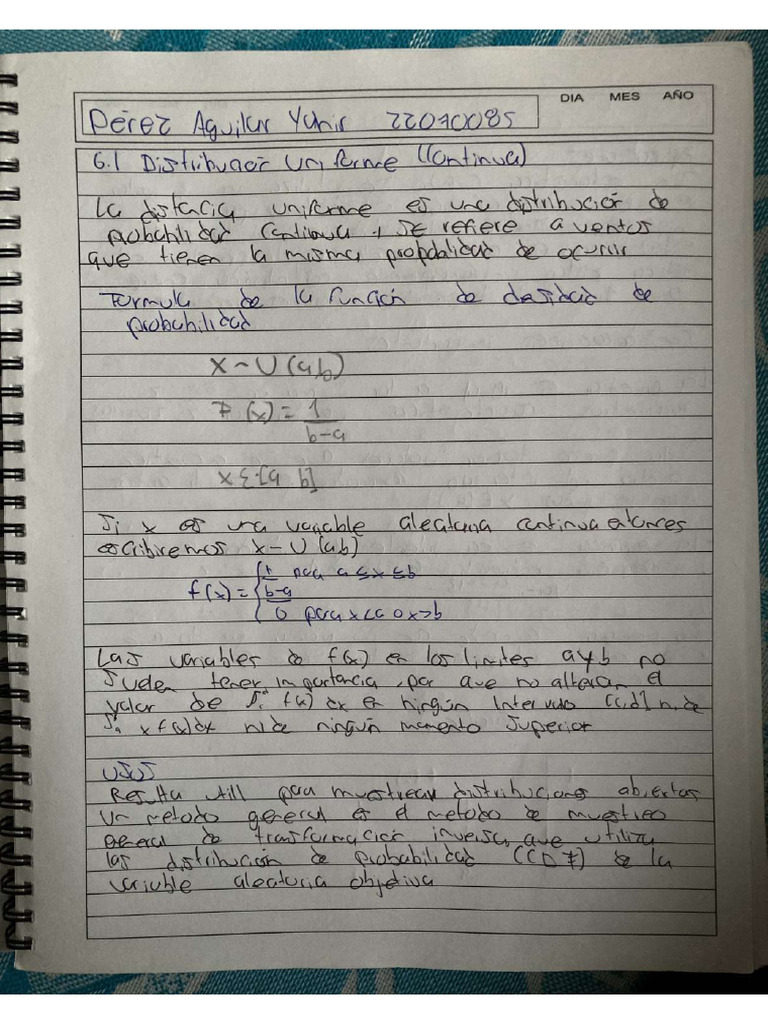 DIA MES AÑO
Pérez Aguilar Yahir 22070085
6.1 Distribución Uniforme (Continua)
La distacia uniforme es una distribución de
probabilidad continua, se refiere a ventos
que tienen la misma probabilidad de ocurrir
Formula de la función de desidad de
probabilidad
X ~ U (a b)
F (x) = 1
b-a
x ε [a b]
Si x es una variable aleatoria continua entonces
escribiremos x ~ U (a b)
f(x) = { 1 para a ≤ x ≤ b
b-a
0 para x < a o x > b
Las variables de f(x) en los limites a y b no
suelen tener importancia, por que no alteran el
valor de ∫ f(x) dx en ningún intervalo [c,d] ni de
∫ x f(x) dx ni de ningún momento superior
USOS
Resulta utill para muestrear distribuciones abiertas
un metodo general es el metodo de muestreo
general de transformación inversa, que utiliza
las distribución de probabilidad (CDF) de la
variable aleatoria objetiva